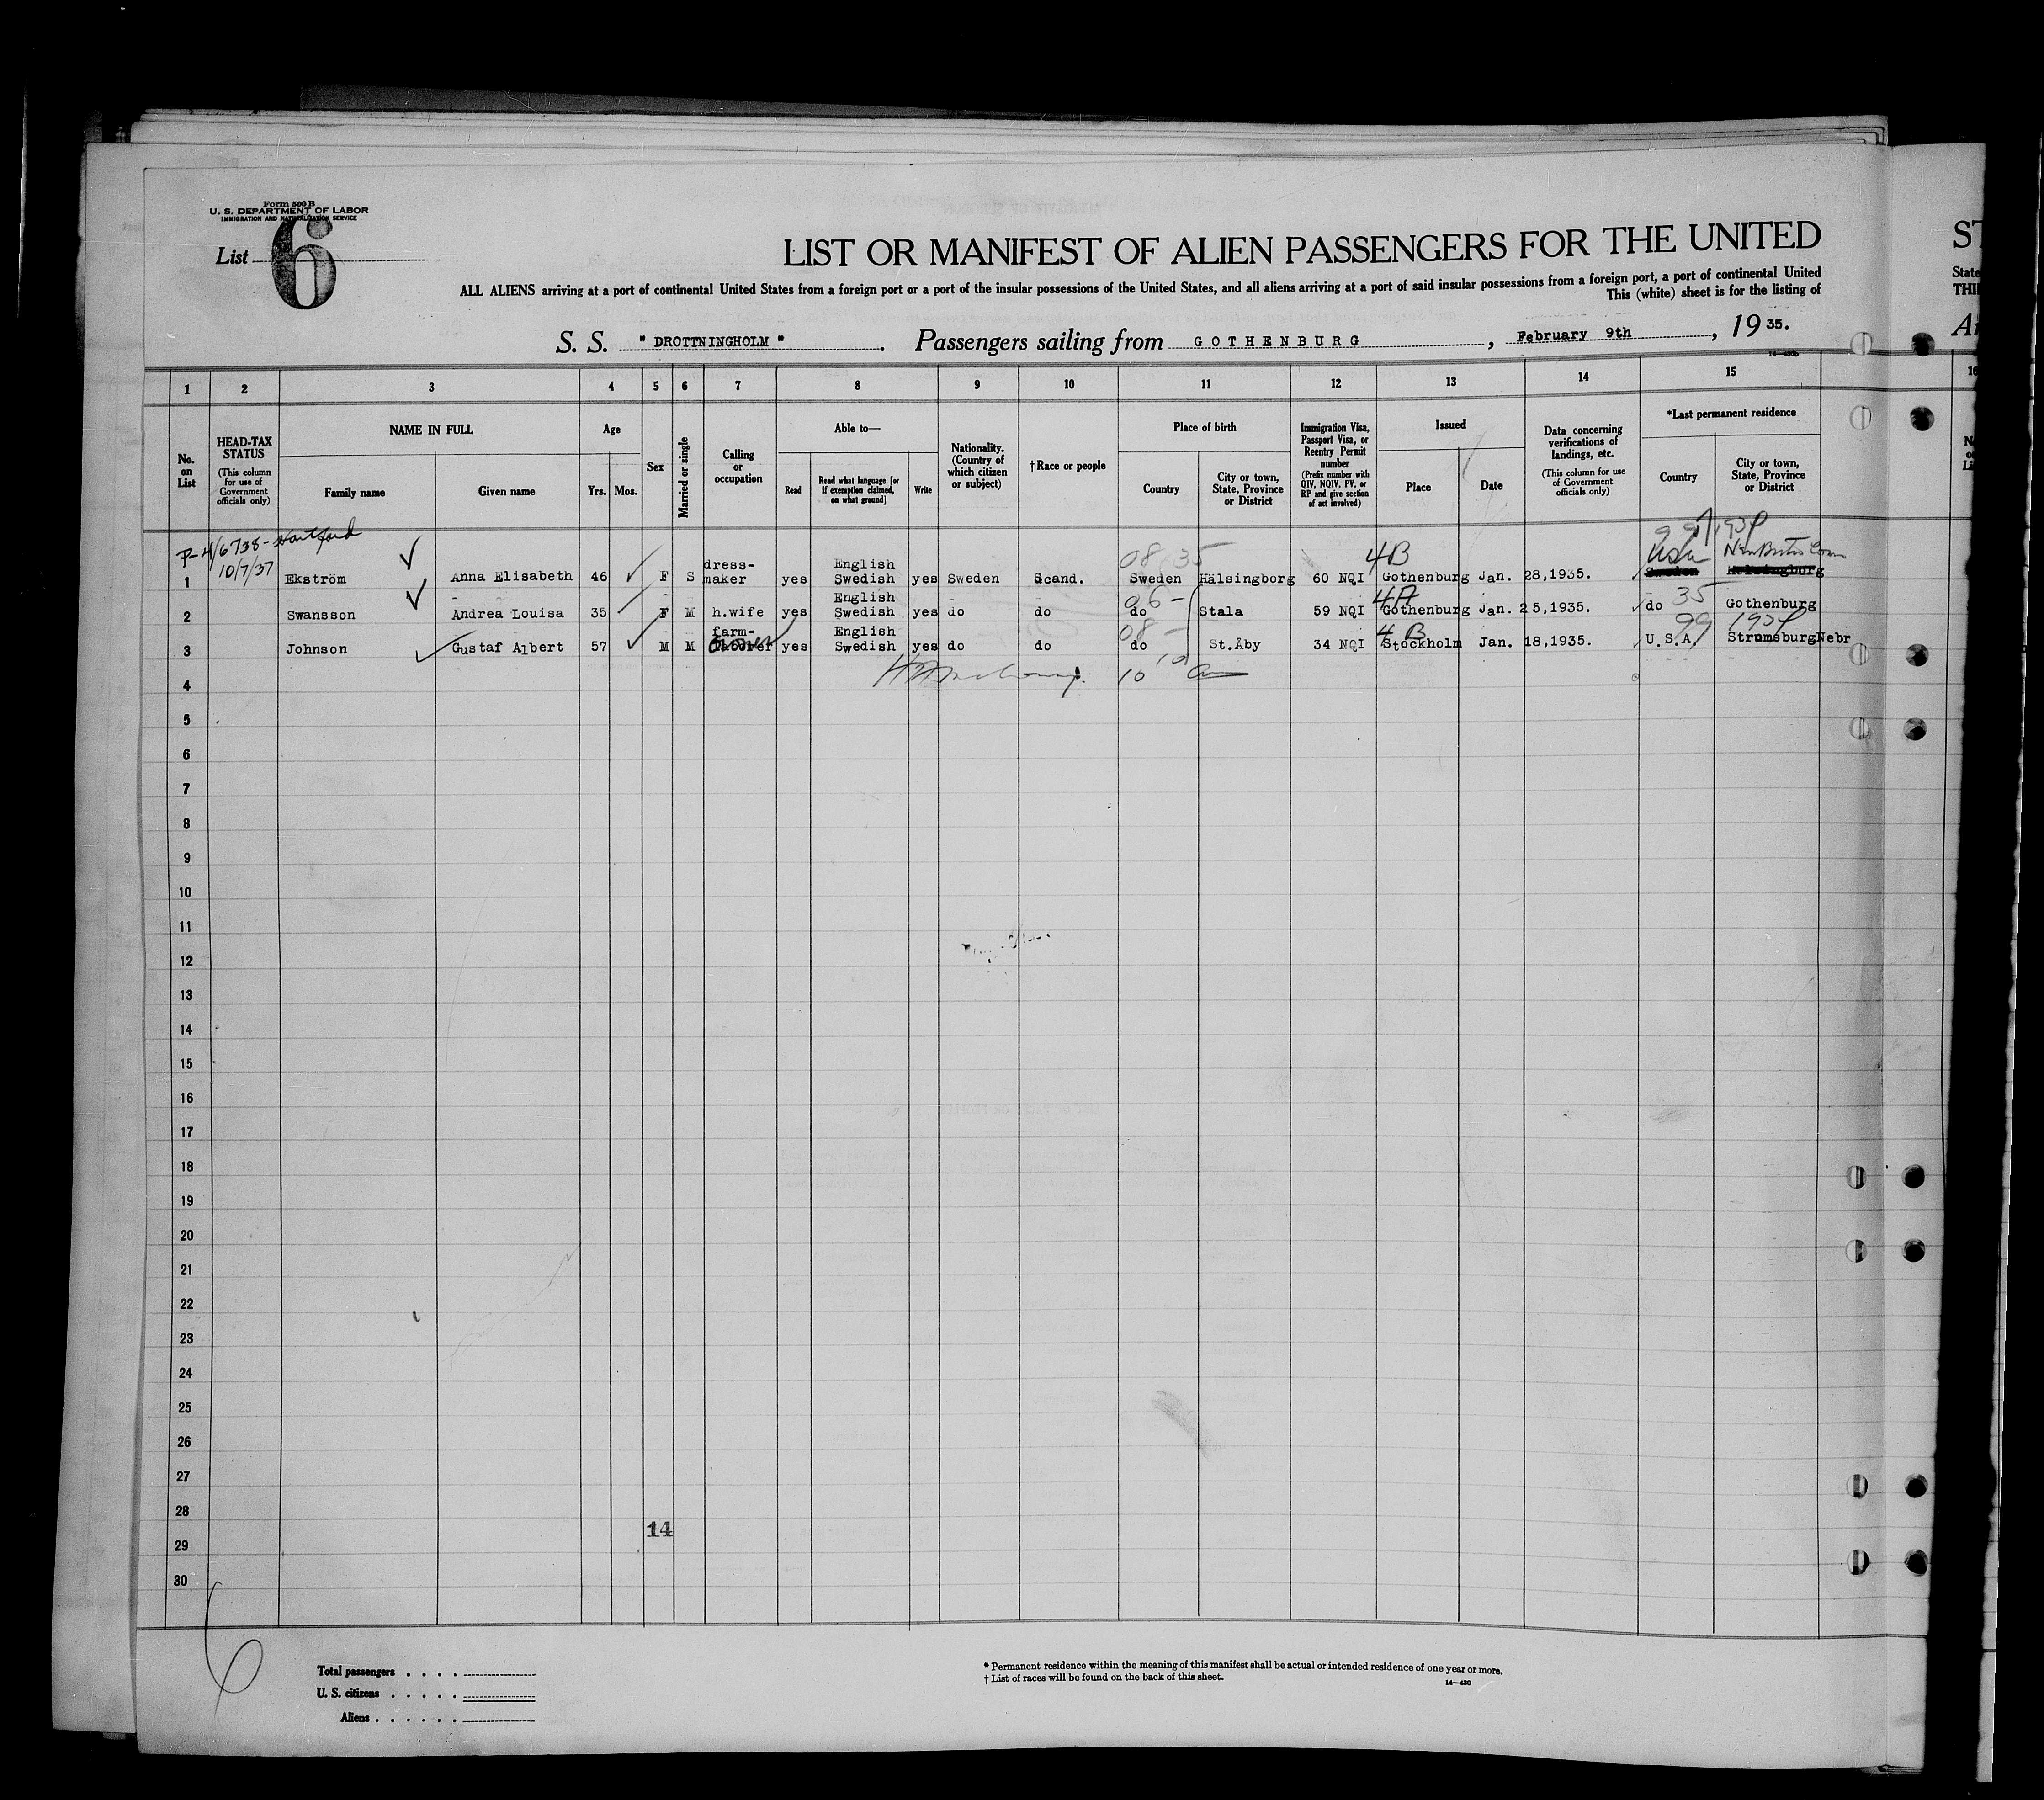 Form 500 B
U. S. DEPARTMENT OF LABOR
IMMIGRATION AND NATURALIZATION SERVICE
List 6
LIST OR MANIFEST OF ALIEN PASSENGERS FOR THE UNITED
ST
ALL ALIENS arriving at a port of continental United States from a foreign port or a port of the insular possessions of the United States, and all aliens arriving at a port of said insular possessions from a foreign port, a port of continental United
State
This (white) sheet is for the listing of
THI
S. S. "DROTTNINGHOLM". Passengers sailing from GOTHENBURG, February 9th, 19 35.
14—430b
1 2 3 4 5 6 7 8 9 10 11 12 13 14 15 16
No. on List
HEAD-TAX STATUS (This column for use of Government officials only)
NAME IN FULL
Family name
Given name
Age
Yrs. Mos.
Sex
Married or single
Calling or occupation
Able to—
Read
Read what language [or if exemption claimed, on what ground]
Write
Nationality. (Country of which citizen or subject)
†Race or people
Place of birth
Country
City or town, State, Province or District
Immigration Visa, Passport Visa, or Reentry Permit number (Prefix number with QIV, NQIV, PV, or RP and give section of act involved)
Issued
Place
Date
Data concerning verifications of landings, etc. (This column for use of Government officials only)
*Last permanent residence
Country
City or town, State, Province or District
P-4/6738-Hartford
10/7/37
99 1934
08 35 4B USA
1 Ekström Anna Elisabeth 46 F S dress-maker yes English Swedish yes Sweden Scand. Sweden Hälsingborg 60 NQI Gothenburg Jan. 28,1935. Sweden Helsingborg
06- 4A 35
2 Swansson Andrea Louisa 35 F M h.wife yes English Swedish yes do do do Stala 59 NQI Gothenburg Jan. 25,1935. do Gothenburg
08- 4B 99 1934
3 Johnson Gustaf Albert 57 M M farm- yes English Swedish yes do do do St.Åby 34 NQI Stockholm Jan. 18,1935. U.S.A. StromsburgNebr
4
5
6
7
8
9
10
11
12
13
14
15
16
17
18
19
20
21
22
23
24
25
26
27
28
14
29
30
6
Total passengers . . . .
U. S. citizens . . . . .
Aliens . . . . . .
* Permanent residence within the meaning of this manifest shall be actual or intended residence of one year or more.
† List of races will be found on the back of this sheet.
14—430